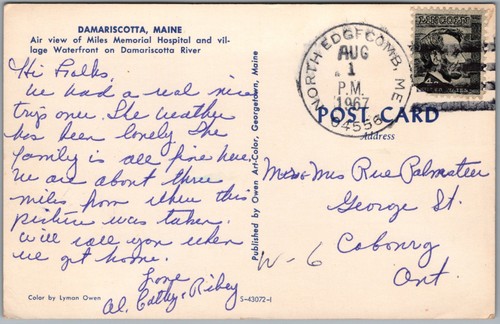 DAMARISCOTTA, MAINE
Air view of Miles Memorial Hospital and vil-
lage Waterfront on Damariscotta River
Hi Folks,
We had a real nice
trip over. The weather
has been lovely. The
family is all fine here.
We are about three
miles from where this
picture was taken.
Will call you when
we get home.
Love
Al. Cathy &
Color by Lyman Owen
S-43072-1
Published by Owen Art-Color, Georgetown, Maine
NORTH EDGECOMB, ME
AUG
1
P.M.
1967
04556
LINCOLN
4
POST CARD
Address
Palmateer
George St.
W-6 Cobourg
Ont.